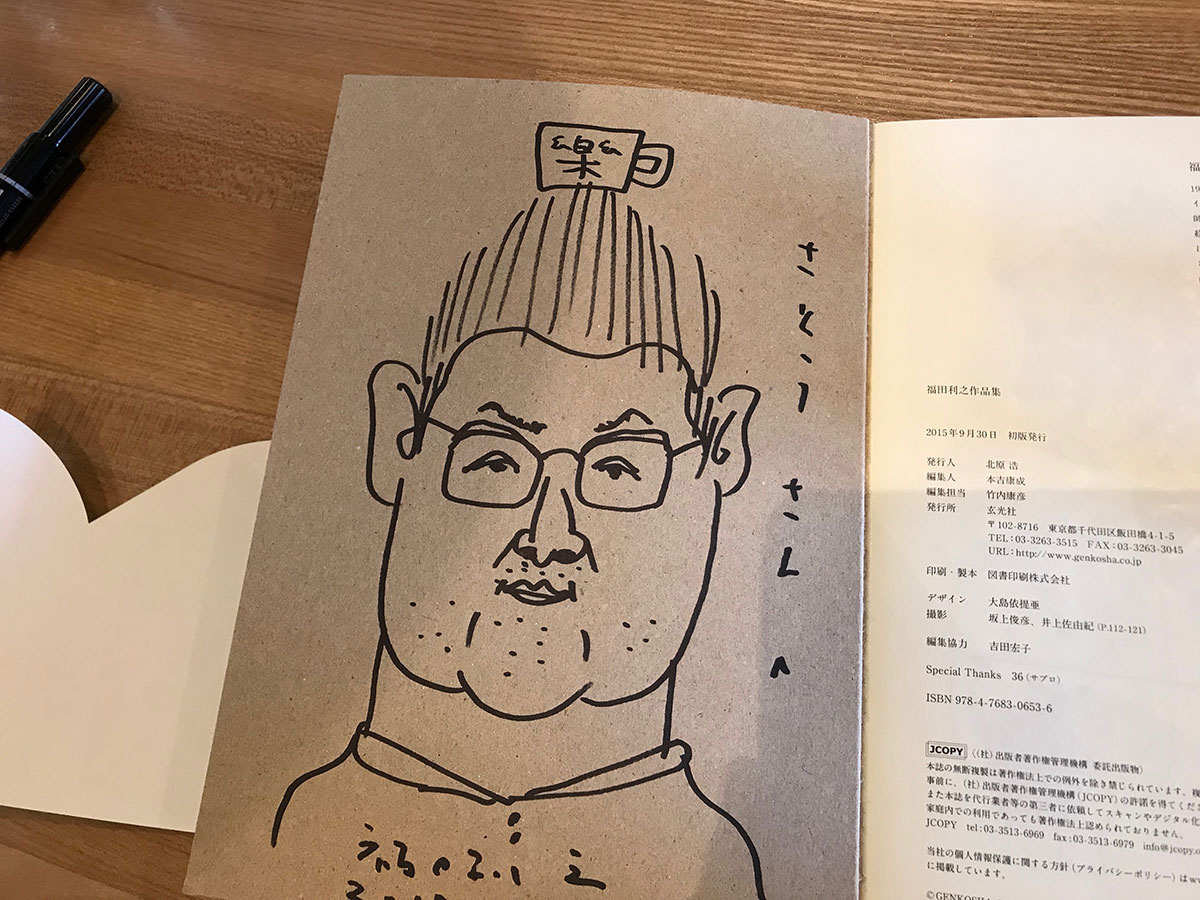 樂
さとう さん へ
福田利之
福田利之作品集
2015年9月30日 初版発行
発行人 北原 浩
編集人 本吉康成
編集担当 竹内康彦
発行所 玄光社
〒102-8716 東京都千代田区飯田橋4-1-5
TEL：03-3263-3515 FAX：03-3263-3045
URL：http://www.genkosha.co.jp
印刷・製本 図書印刷株式会社
デザイン 大島依提亜
撮影 坂上俊彦、井上佐由紀（P.112-121）
編集協力 吉田宏子
Special Thanks 36（サブロ）
ISBN 978-4-7683-0653-6
JCOPY 〈（社）出版者著作権管理機構 委託出版物〉
本誌の無断複製は著作権法上での例外を除き禁じられています。複
事前に、（社）出版者著作権管理機構（JCOPY）の許諾を得てくだ
また本誌を代行業者等の第三者に依頼してスキャンやデジタル化
家庭内での利用であっても著作権法上認められておりません。
JCOPY tel：03-3513-6969 fax：03-3513-6979 info@jcopy.o
当社の個人情報保護に関する方針（プライバシーポリシー）はww
に掲載しています。
©GENKOSHA